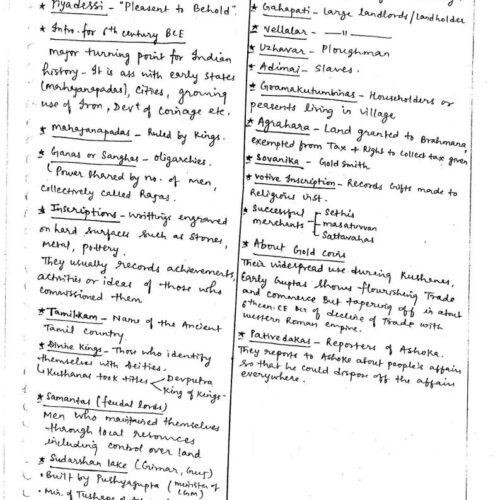 * Piyadessi - "Pleasent to Behold".
* Intro. for 6th century BCE
major turning point for Indian
history - It is ass with early states
(mahajanapadas), cities, growing
use of Iron, Devt of coinage etc.
* Mahajanapadas - Ruled by Kings.
* Ganas or Sanghas - oligarchies.
(Power shared by no. of men,
collectively called Rajas.
* Inscriptions - Writtings engraved
on hard surfaces such as Stones,
metal, pottery.
They usually records achievements,
activities or ideas of those who
commissioned them
* Tamilkam - Name of the Ancient
Tamil country.
* Divine Kings - Those who identify
themselves with Deities.
Kushanas took titles Devputra
King of Kings
* Samantas (feudal lords)
Men who maintained themselves
through local resources
including control over land
* Sudarshan lake (Girnar, Guj)
• Built by Pushyagupta (minister of CGM)
* Gahapati - Large landlords/landholder
* Vellalar - —"—
* Uzhavar - Ploughman
* Adimai - Slaves.
* Goamakutumbinas - Householders or
peasents living in village
* Agrahara - Land granted to Brahmana,
exempted from Tax + Right to collect tax given
* Sovanika - Gold smith
* Votive Inscription - Records Gifts made to
Religious inst.
* Successful merchants Sethis
masatuvan
Sattavahas
* About Gold coins
Their widespread use during Kushanas,
Early Guptas shows flourishing Trade
and commerce But tapering off in about
6th cen. CE bcz of decline of Trade with
western Roman empire.
* Pativedakas - Reporters of Ashoka.
They reports to Ashoka about people's affairs
so that he could dispose off the affairs
everywhere.